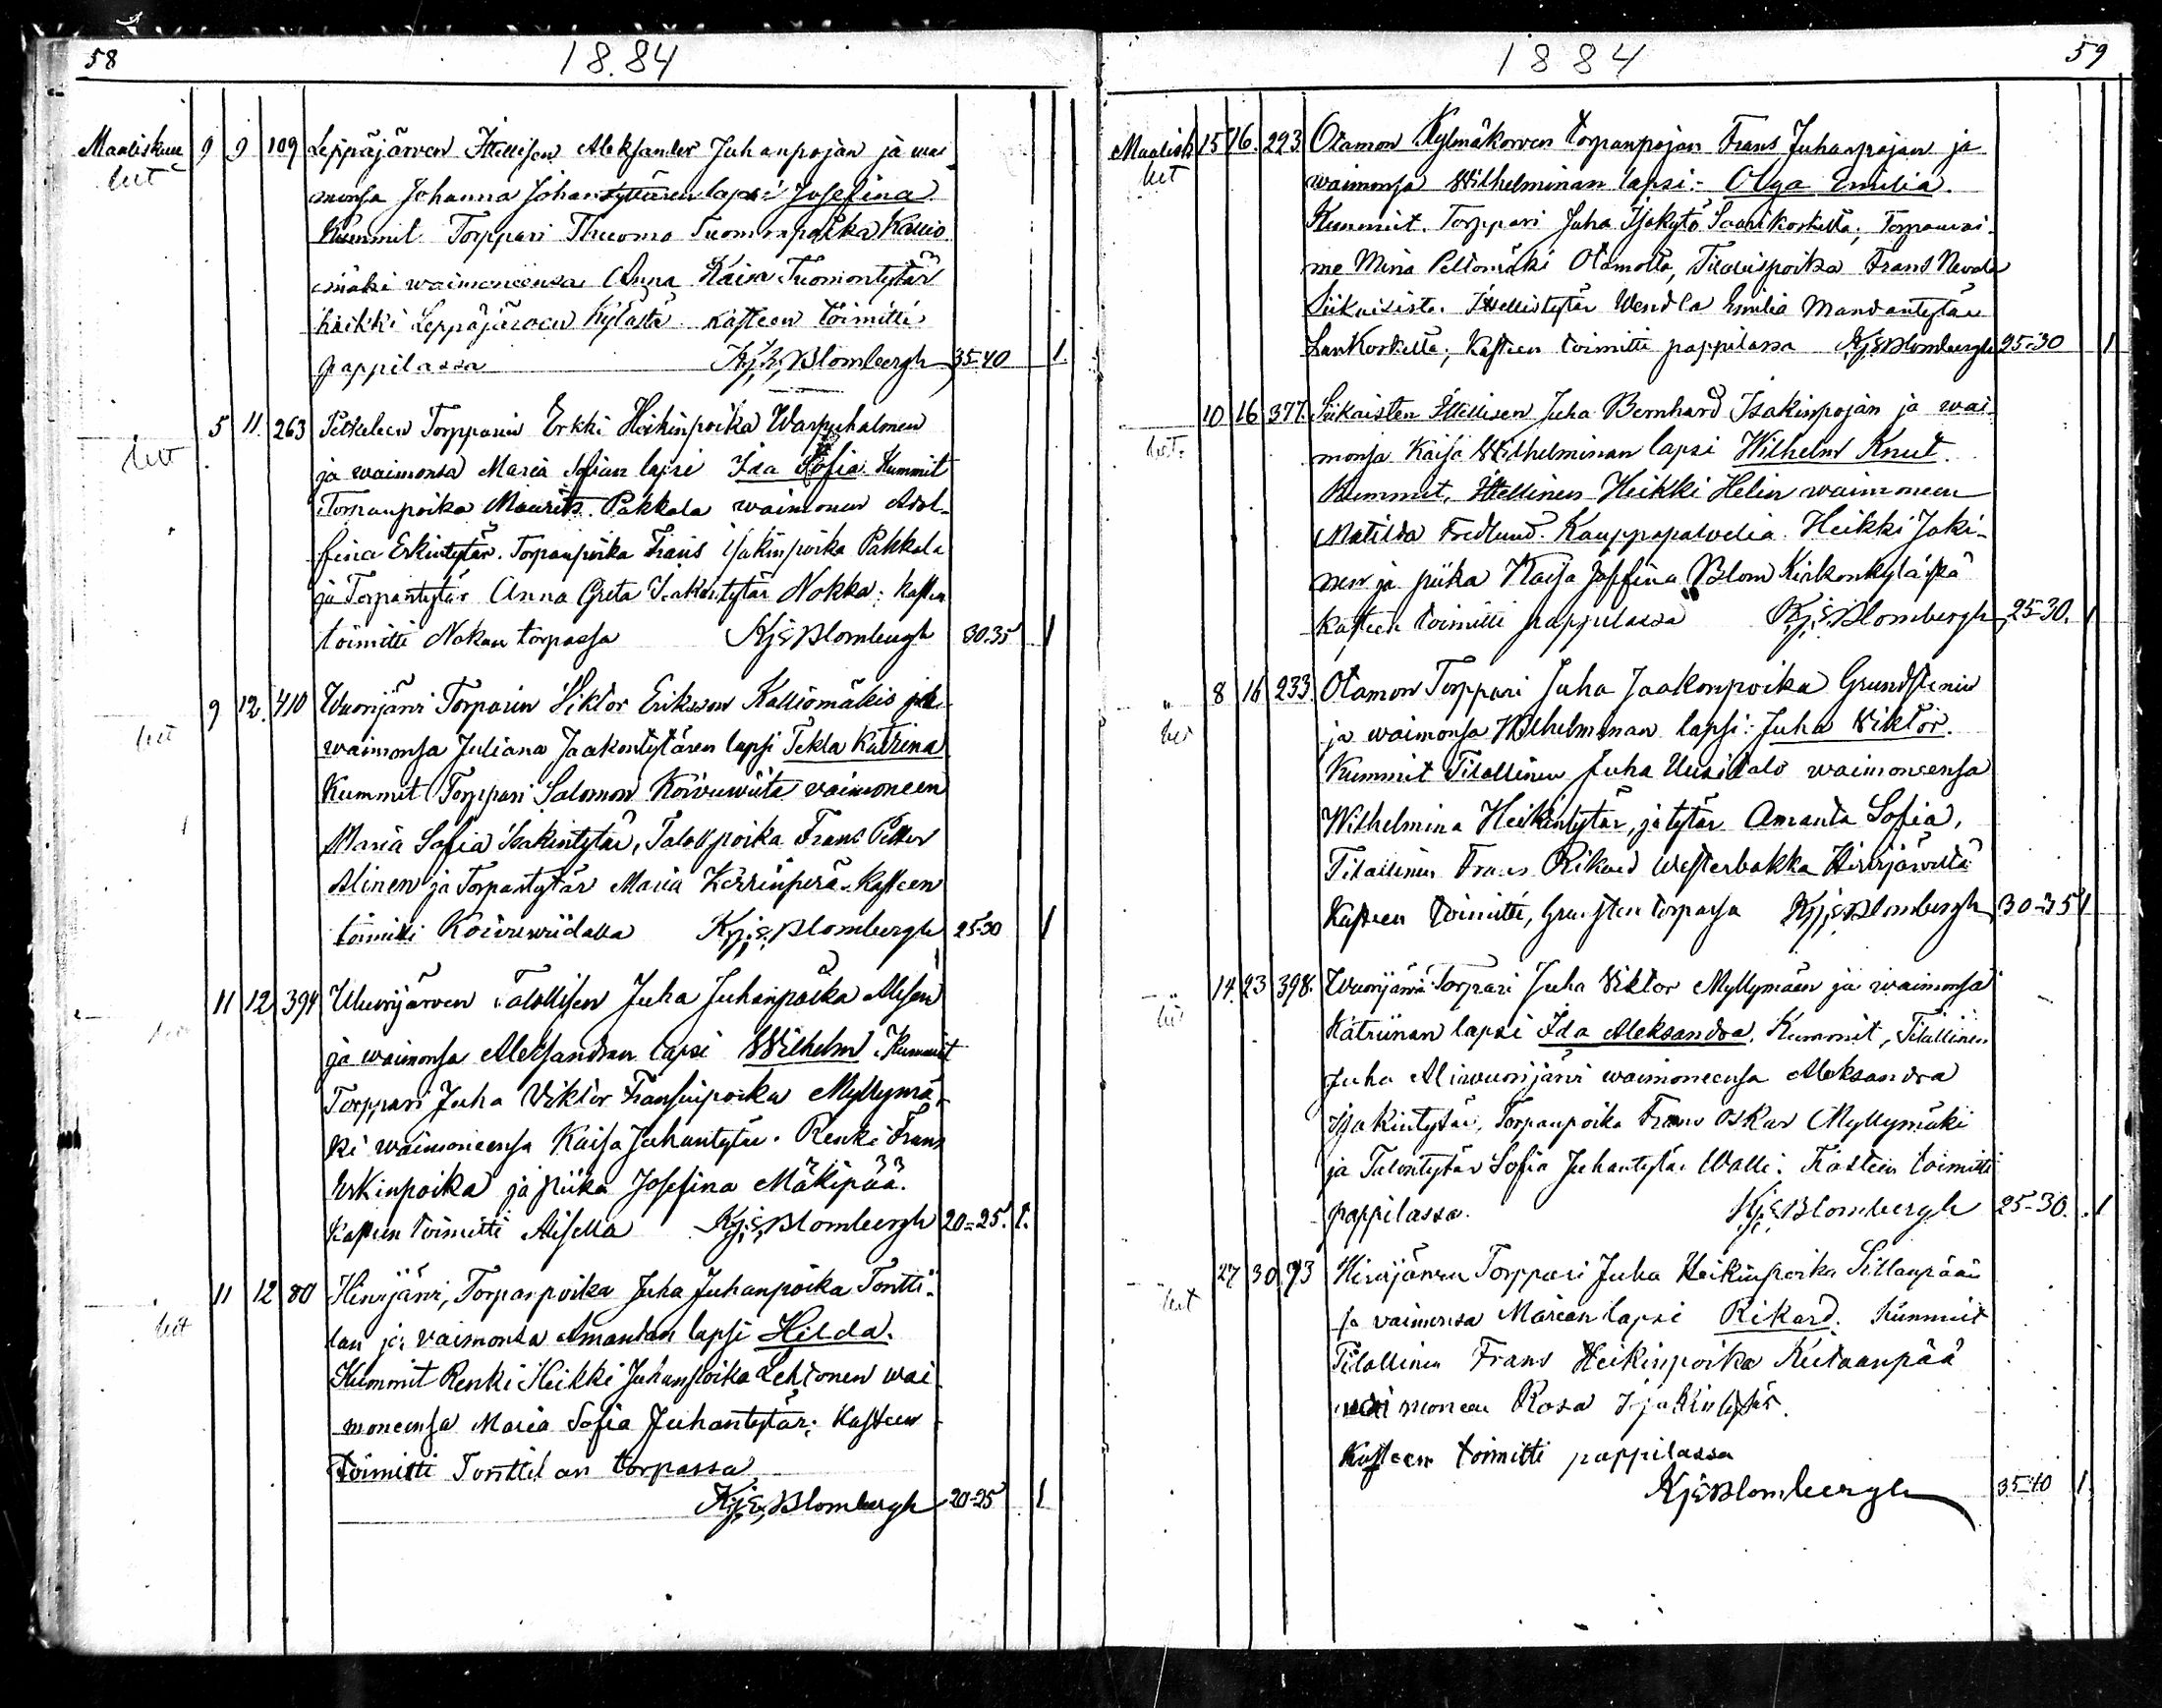 58
18.84
Maaliskuu 9 9 109 Leppäjärven Itellisen Aleksander Juhanpojan ja wai
monsa Johanna Johantyttären lapsi Josefina
Kummit Torppari Thuomo Tuomonpoika Kallio
mäki waimoneensa Anna Kaisa Tuomontytär
kaikki Leppäjärven Kylästä. Kasteen toimitti
pappilassa Kj. E. Blombergh 35-40 1.
5 11. 263 Torpparin Erkki Heikinpoika Warpuhalmen
ja waimonsa Maria Sofian lapsi Ida Sofia. Kummit
Torpanpoika Maurits Pakkala waimonen Adol-
fina Erkintytär. Torpanpoika Frans Isakinpoika Pakkala
ja Torpantytär Anna Greta Isakintytär Nokka: kasteen
toimitti Nokan torpassa Kj. E. Blombergh 30.35 1
9 12. 410 Wuorijärvi Torparin Viktor Erikson Kalliomäkis ja
waimonsa Juliana Jaakontytären lapsi Tekla Katrina
Kummit Torppari Salomon Koivuwiita waimoneen
Maria Sofia Isakintytär, Talollpoika Frans Petter
Alinen ja Torpantytär Maria Kerrinperä. Kasteen
toimitti Koivuwiidalla Kj. E. Blombergh 25-30 1
11 12 394 Wuorijärven Talollisen Juha Juhanpoika Alisen
ja waimonsa Aleksandran lapsi Wilhelm. Kummit
Torppari Juha Viktor Fransinpoika Myllymä-
ki waimoneensa Kaisa Juhantytär. Renki Frans
Erkinpoika ja piika Josefina Mäkipää.
Kasteen toimitti Alisella Kj. E. Blombergh 20=25. 1.
11 12 80 Hirvijärvi, Torpanpoika Juha Juhanpoika Tontti-
lan ja vaimonsa Amandan lapsi Hilda.
Kummit Renki Heikki Juhanpoika Lehtonen wai
moneensa Maria Sofia Juhantytär; Kasteen
toimitti Tonttilan torpassa
Kj. E. Blombergh 20-25 1
1884
59
Maalisk 15 16. 223 Otamon Kylmäkorven torpanpojan Frans Juhanpojan ja
waimonsa Wilhelminan lapsi:- Olga Emilia.
Kummit. Torppari Juha Isokytö Saarikoskelta, Torpanwai-
mo Mina Peltomäki Otamolta, Frans Nevala
Siikaisista. Itellistytär Wendla Emilia Mandantytär
Lankoskella; Kasteen toimitti pappilassa Kj. E. Blombergh 25=30 1
10 16 377. Siikaisten Itellisen Juha Bernhard Isakinpojan ja wai-
monsa Kaisa Wilhelminan lapsi Wilhelm Knut.
Kummit, Itellinen Heikki Helin waimoneen
Matilda Fredlund. Kauppapalvelia Heikki Joki-
nen ja piika Kaisa Joffina Blom Kirkonkylästä
Kasteen toimitti pappilassa Kj. E. Blombergh 25-30. 1
" 8 16 233. Otamon Torppari Juha Jaakonpoika Grundstenin
ja waimonsa Wilhelminan lapsi: Juha Wiktor.
Kummit Tilallinen Juha Uusitalo waimoneensa
Wilhelmina Heikintytär, ja tytär Amanda Sofia,
Tilallinen Frans Rikard Westerbakka Hirvijärveltä
Kasteen toimitti, torpassa Kj. E. Blombergh 30=35 1
" 14. 23 398. Wuorijärvi Torpari Juha Viktor Myllymäen ja waimonsa
Katriinan lapsi Ida Aleksandra. Kummit, Tilallinen
Juha Aliwuorijärvi waimoneensa Aleksandra
Isakintytär, Torpanpoika Frans Oskar Myllymäki
ja Talontytär Sofia Juhantytär Walli: Kasteen toimitti
pappilassa. Kj. E. Blombergh 25-30. 1
27 30 73 Hirvijärven Torppari Juha Heikinpoika Sillanpään
ja vaimonsa Marian lapsi Rikard. Kummit
Tilallinen Frans Heikinpoika Kiitaanpää
waimoneen Rosa Isakintytär.
Kasteen toimitti pappilassa
Kj. E. Blombergh 35-40 1